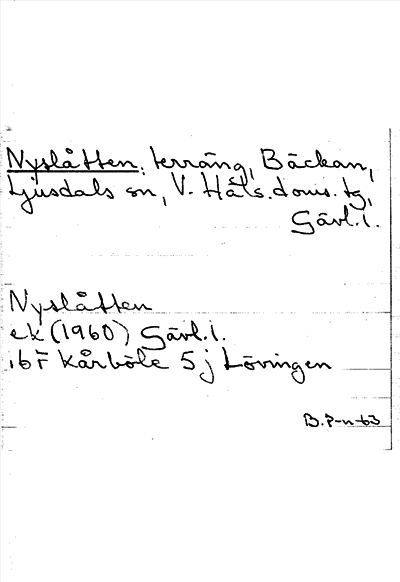 Nyslåtten, terräng, Bäckan,
Ljusdals sn, V. Häls. doms. tg,
Gävl. l.
Nyslåtten
ek (1960) Gävl. l.
Kårböle 5 j Lövingen
B. P-n-63